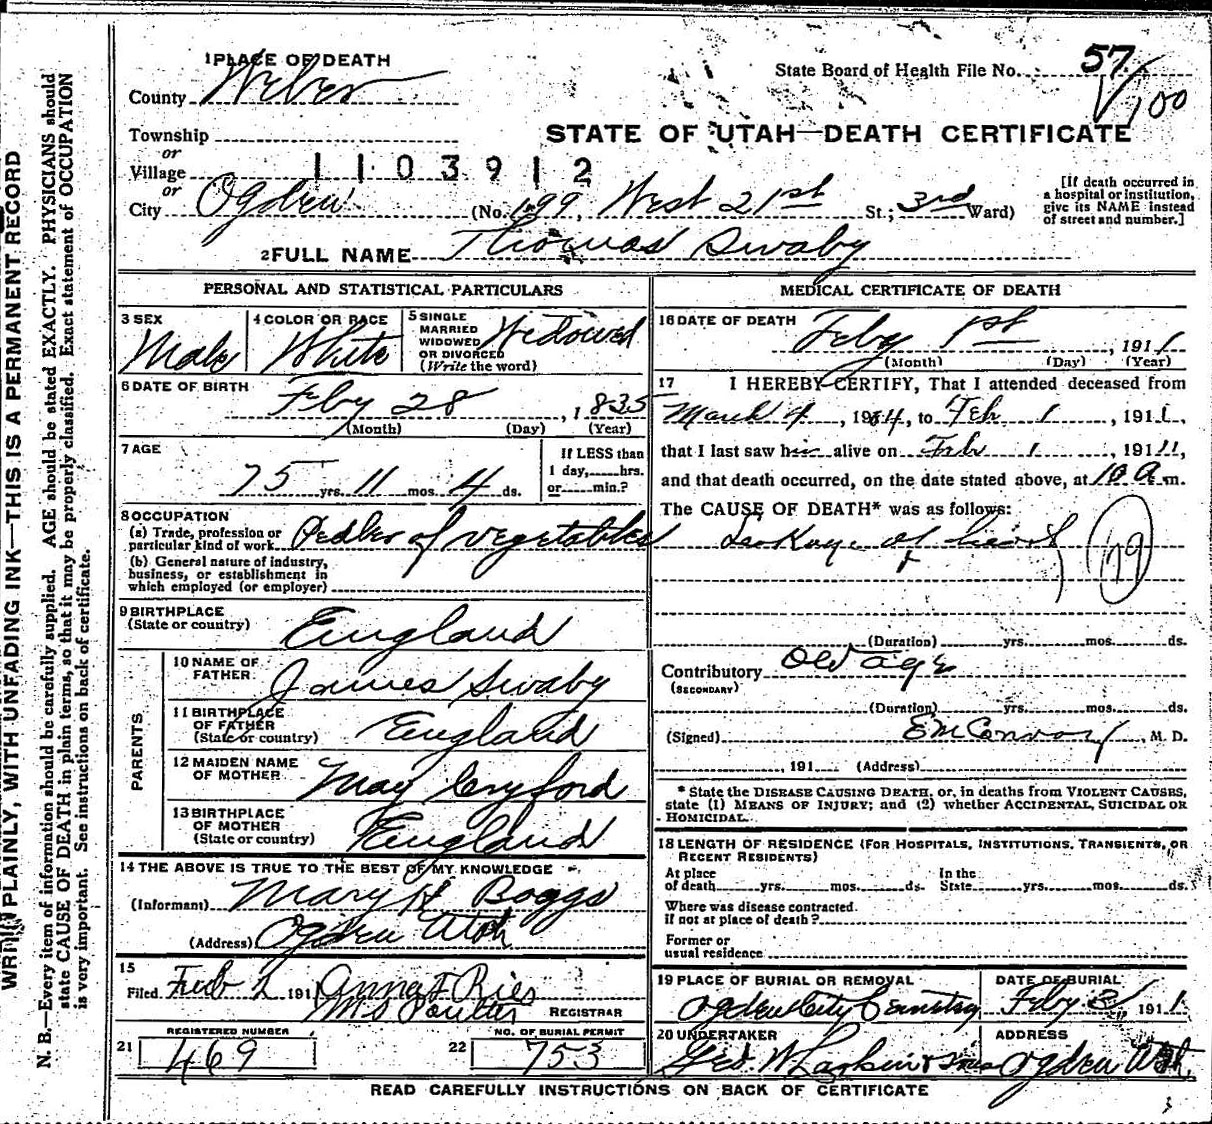 WRITE PLAINLY, WITH UNFADING INK—THIS IS A PERMANENT RECORD
N. B.—Every item of information should be carefully supplied. AGE should be stated EXACTLY. PHYSICIANS should
state CAUSE OF DEATH in plain terms, so that it may be properly classified. Exact statement of OCCUPATION
is very important. See instructions on back of certificate.
1 PLACE OF DEATH
County Weber
State Board of Health File No. 57
100
Township
or
Village
or
STATE OF UTAH—DEATH CERTIFICATE
1103912
City Ogden (No. 199, West 21st St.; 3rd Ward)
[If death occurred in
a hospital or institution,
give its NAME instead
of street and number.]
2 FULL NAME Thomas Swaby
PERSONAL AND STATISTICAL PARTICULARS
3 SEX
Male
4 COLOR OR RACE
White
5 SINGLE
MARRIED
WIDOWED
OR DIVORCED
(Write the word)
Widowed
6 DATE OF BIRTH
Feby 28, 1835
(Month) (Day) (Year)
7 AGE
75 yrs. 11 mos. 4 ds.
If LESS than
1 day,......hrs.
or......min.?
8 OCCUPATION
(a) Trade, profession or
particular kind of work Pedler of vegetables
(b) General nature of industry,
business, or establishment in
which employed (or employer)
9 BIRTHPLACE
(State or country) England
PARENTS
10 NAME OF
FATHER James Swaby
11 BIRTHPLACE
OF FATHER
(State or country) England
12 MAIDEN NAME
OF MOTHER May
13 BIRTHPLACE
OF MOTHER
(State or country) England
14 THE ABOVE IS TRUE TO THE BEST OF MY KNOWLEDGE
(Informant) Mary H Boggs
(Address) Ogden Utah
15
Filed Feb 2 191 Anna F Ries
REGISTRAR
21 REGISTERED NUMBER
469
22 NO. OF BURIAL PERMIT
753
MEDICAL CERTIFICATE OF DEATH
16 DATE OF DEATH
Feby 1st, 1911
(Month) (Day) (Year)
17 I HEREBY CERTIFY, That I attended deceased from
March 4, 19 , to Feb 1, 1911,
that I last saw him alive on Feb 1, 1911,
and that death occurred, on the date stated above, at 10 A. m.
The CAUSE OF DEATH* was as follows:
Leakage of heart
79
(Duration) yrs. mos. ds.
Contributory Old age
(SECONDARY)
(Duration) yrs. mos. ds.
(Signed) E M Conroy, M. D.
, 191 (Address)
* State the DISEASE CAUSING DEATH, or, in deaths from VIOLENT CAUSES,
state (1) MEANS OF INJURY; and (2) whether ACCIDENTAL, SUICIDAL OR
HOMICIDAL.
18 LENGTH OF RESIDENCE (FOR HOSPITALS, INSTITUTIONS, TRANSIENTS, OR
RECENT RESIDENTS)
At place
of death yrs. mos. ds.
In the
State yrs. mos. ds.
Where was disease contracted.
if not at place of death?
Former or
usual residence
19 PLACE OF BURIAL OR REMOVAL
Ogden City Cemetry
DATE OF BURIAL
Feby 3 1911
20 UNDERTAKER
Geo. W Larkin & Sons
ADDRESS
Ogden Utah.
READ CAREFULLY INSTRUCTIONS ON BACK OF CERTIFICATE